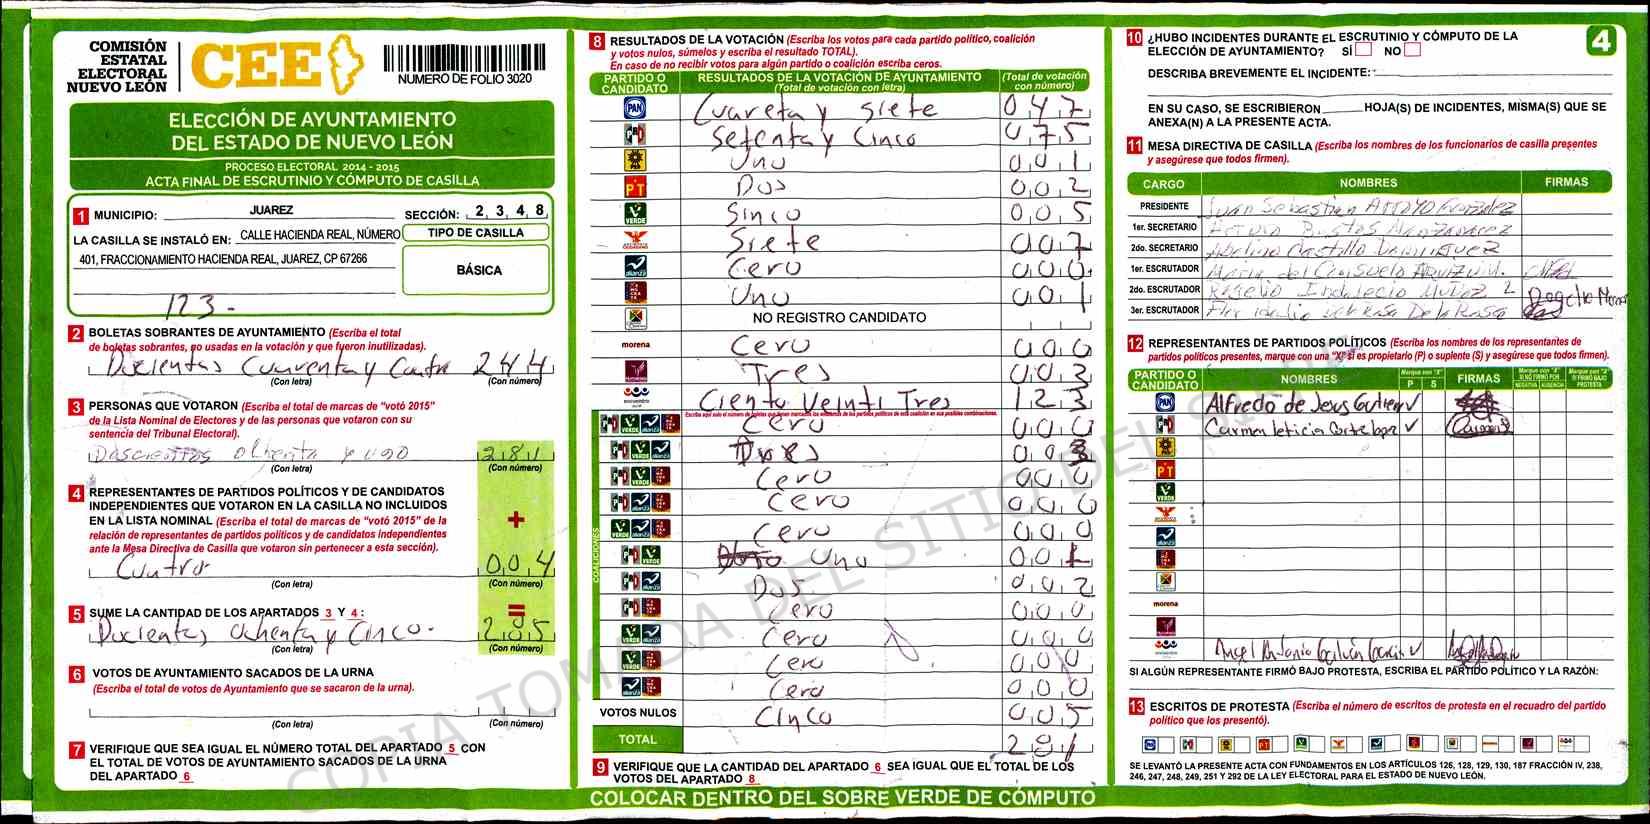 COMISIÓN
ESTATAL
ELECTORAL
NUEVO LEÓN
CEE
NUMERO DE FOLIO 3020
ELECCIÓN DE AYUNTAMIENTO
DEL ESTADO DE NUEVO LEÓN
PROCESO ELECTORAL 2014 - 2015
ACTA FINAL DE ESCRUTINIO Y CÓMPUTO DE CASILLA
1 MUNICIPIO: JUAREZ SECCIÓN: 2,3,4,8
LA CASILLA SE INSTALÓ EN: CALLE HACIENDA REAL, NÚMERO
401, FRACCIONAMIENTO HACIENDA REAL, JUAREZ, CP 67266
TIPO DE CASILLA
BÁSICA
123-
2 BOLETAS SOBRANTES DE AYUNTAMIENTO (Escriba el total
de boletas sobrantes, no usadas en la votación y que fueron inutilizadas).
Docientas Cuarenta y Cuatro 244
(Con letra) (Con número)
3 PERSONAS QUE VOTARON (Escriba el total de marcas de "votó 2015"
de la Lista Nominal de Electores y de las personas que votaron con su
sentencia del Tribunal Electoral).
Doscientos ochenta y uno 281
(Con letra) (Con número)
4 REPRESENTANTES DE PARTIDOS POLÍTICOS Y DE CANDIDATOS
INDEPENDIENTES QUE VOTARON EN LA CASILLA NO INCLUIDOS
EN LA LISTA NOMINAL (Escriba el total de marcas de "votó 2015" de la
relación de representantes de partidos políticos y de candidatos independientes
ante la Mesa Directiva de Casilla que votaron sin pertenecer a esta sección).
+
Cuatro 004
(Con letra) (Con número)
5 SUME LA CANTIDAD DE LOS APARTADOS 3 Y 4 :
=
Docientas ochenta y Cinco- 285
(Con letra) (Con número)
6 VOTOS DE AYUNTAMIENTO SACADOS DE LA URNA
(Escriba el total de votos de Ayuntamiento que se sacaron de la urna).
(Con letra) (Con número)
7 VERIFIQUE QUE SEA IGUAL EL NÚMERO TOTAL DEL APARTADO 5 CON
EL TOTAL DE VOTOS DE AYUNTAMIENTO SACADOS DE LA URNA
DEL APARTADO 6
8 RESULTADOS DE LA VOTACIÓN (Escriba los votos para cada partido político, coalición
y votos nulos, súmelos y escriba el resultado TOTAL).
En caso de no recibir votos para algún partido o coalición escriba ceros.
PARTIDO O CANDIDATO RESULTADOS DE LA VOTACIÓN DE AYUNTAMIENTO (Total de votación con letra) (Total de votación con número)
PAN Cuareta y siete 047
PRD Setenta y Cinco 075
Uno 001
PT Dos 002
VERDE Sinco 005
Siete 007
alianza Cero 000
Uno 001
NO REGISTRO CANDIDATO
morena Cero 000
Tres 003
encuentro Ciento Veinti Tres 123
Escriba aquí solo el número de boletas que tienen marcados los emblemas de los partidos políticos de esta coalición en sus posibles combinaciones.
COALICIONES
Cero 000
Tres 003
Cero 000
Cero 000
Cero 000
Uno 001
Dos 002
Cero 000
Cero 000
Cero 000
Cero 000
VOTOS NULOS Cinco 005
TOTAL 281
9 VERIFIQUE QUE LA CANTIDAD DEL APARTADO 6 SEA IGUAL QUE EL TOTAL DE LOS
VOTOS DEL APARTADO 8
COLOCAR DENTRO DEL SOBRE VERDE DE CÓMPUTO
4
10 ¿HUBO INCIDENTES DURANTE EL ESCRUTINIO Y CÓMPUTO DE LA
ELECCIÓN DE AYUNTAMIENTO? SÍ NO
DESCRIBA BREVEMENTE EL INCIDENTE:
EN SU CASO, SE ESCRIBIERON HOJA(S) DE INCIDENTES, MISMA(S) QUE SE
ANEXA(N) A LA PRESENTE ACTA.
11 MESA DIRECTIVA DE CASILLA (Escriba los nombres de los funcionarios de casilla presentes
y asegúrese que todos firmen).
CARGO NOMBRES FIRMAS
PRESIDENTE Juan Sebastian Arroyo Gonzalez
1er. SECRETARIO Arturo Bustos
2do. SECRETARIO Castillo Dominguez
1er. ESCRUTADOR Maria del Consuelo
2do. ESCRUTADOR Rogelio Indalecio Muñoz Rogelio
3er. ESCRUTADOR Flor De la Rosa
12 REPRESENTANTES DE PARTIDOS POLÍTICOS (Escriba los nombres de los representantes de
partidos políticos presentes, marque con una "X" si es propietario (P) o suplente (S) y asegúrese que todos firmen).
PARTIDO O CANDIDATO NOMBRES Marque con "X" P S FIRMAS Marque con "X" SI NO FIRMÓ POR NEGATIVA AUSENCIA Marque con "X" SI FIRMÓ BAJO PROTESTA
PAN Alfredo de Jesus Gutierr ✓
Carmen leticia Corte lopez ✓ Carmen
PT
VERDE
alianza
morena
encuentro Angel Antonio ✓
SI ALGÚN REPRESENTANTE FIRMÓ BAJO PROTESTA, ESCRIBA EL PARTIDO POLÍTICO Y LA RAZÓN:
13 ESCRITOS DE PROTESTA (Escriba el número de escritos de protesta en el recuadro del partido
político que los presentó).
SE LEVANTÓ LA PRESENTE ACTA CON FUNDAMENTOS EN LOS ARTÍCULOS 126, 128, 129, 130, 187 FRACCIÓN IV, 238,
246, 247, 248, 249, 251 Y 292 DE LA LEY ELECTORAL PARA EL ESTADO DE NUEVO LEÓN.
COPIA TOMADA DEL SITIO DEL